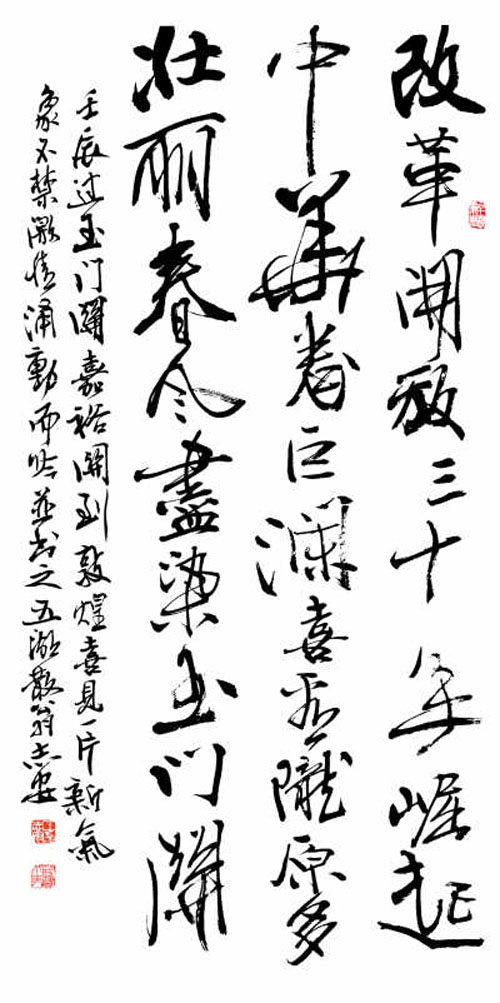 改革開放三十年崛起
中華卷巨瀾喜看隴原多
壮丽春风盡染玉门關
壬辰过玉门關嘉裕關到敦煌喜見一片新氣
象不禁激情涌動而吟并书之五湖散翁志